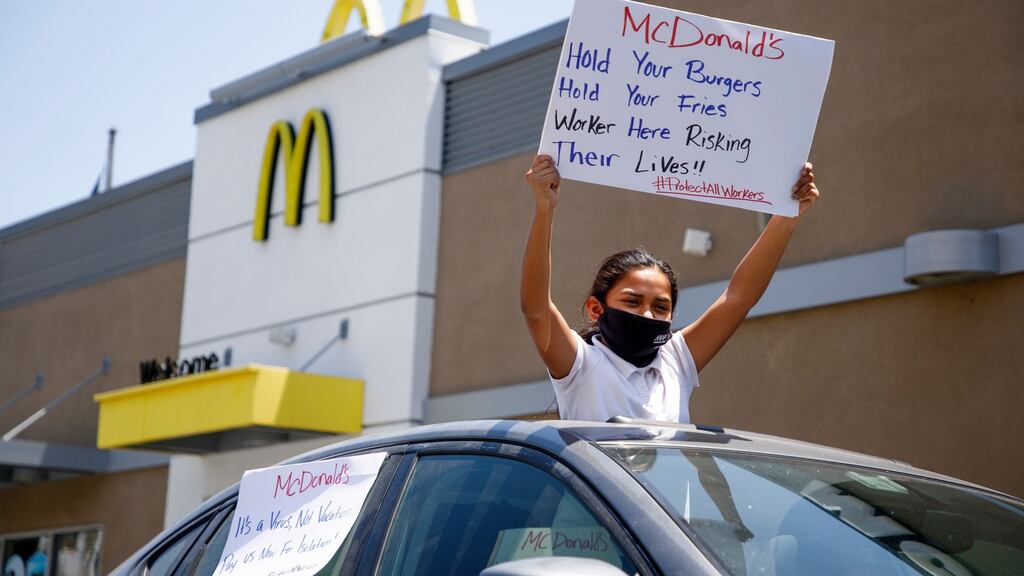 McDonald's
Hold Your Burgers
Hold Your Fries
Worker Here Risking
Their Lives!!
#ProtectAllWorkers
Welcome
McDonald's
It's a Virus, Not Vacation
Pay us Now For Isolation!
McDonald's